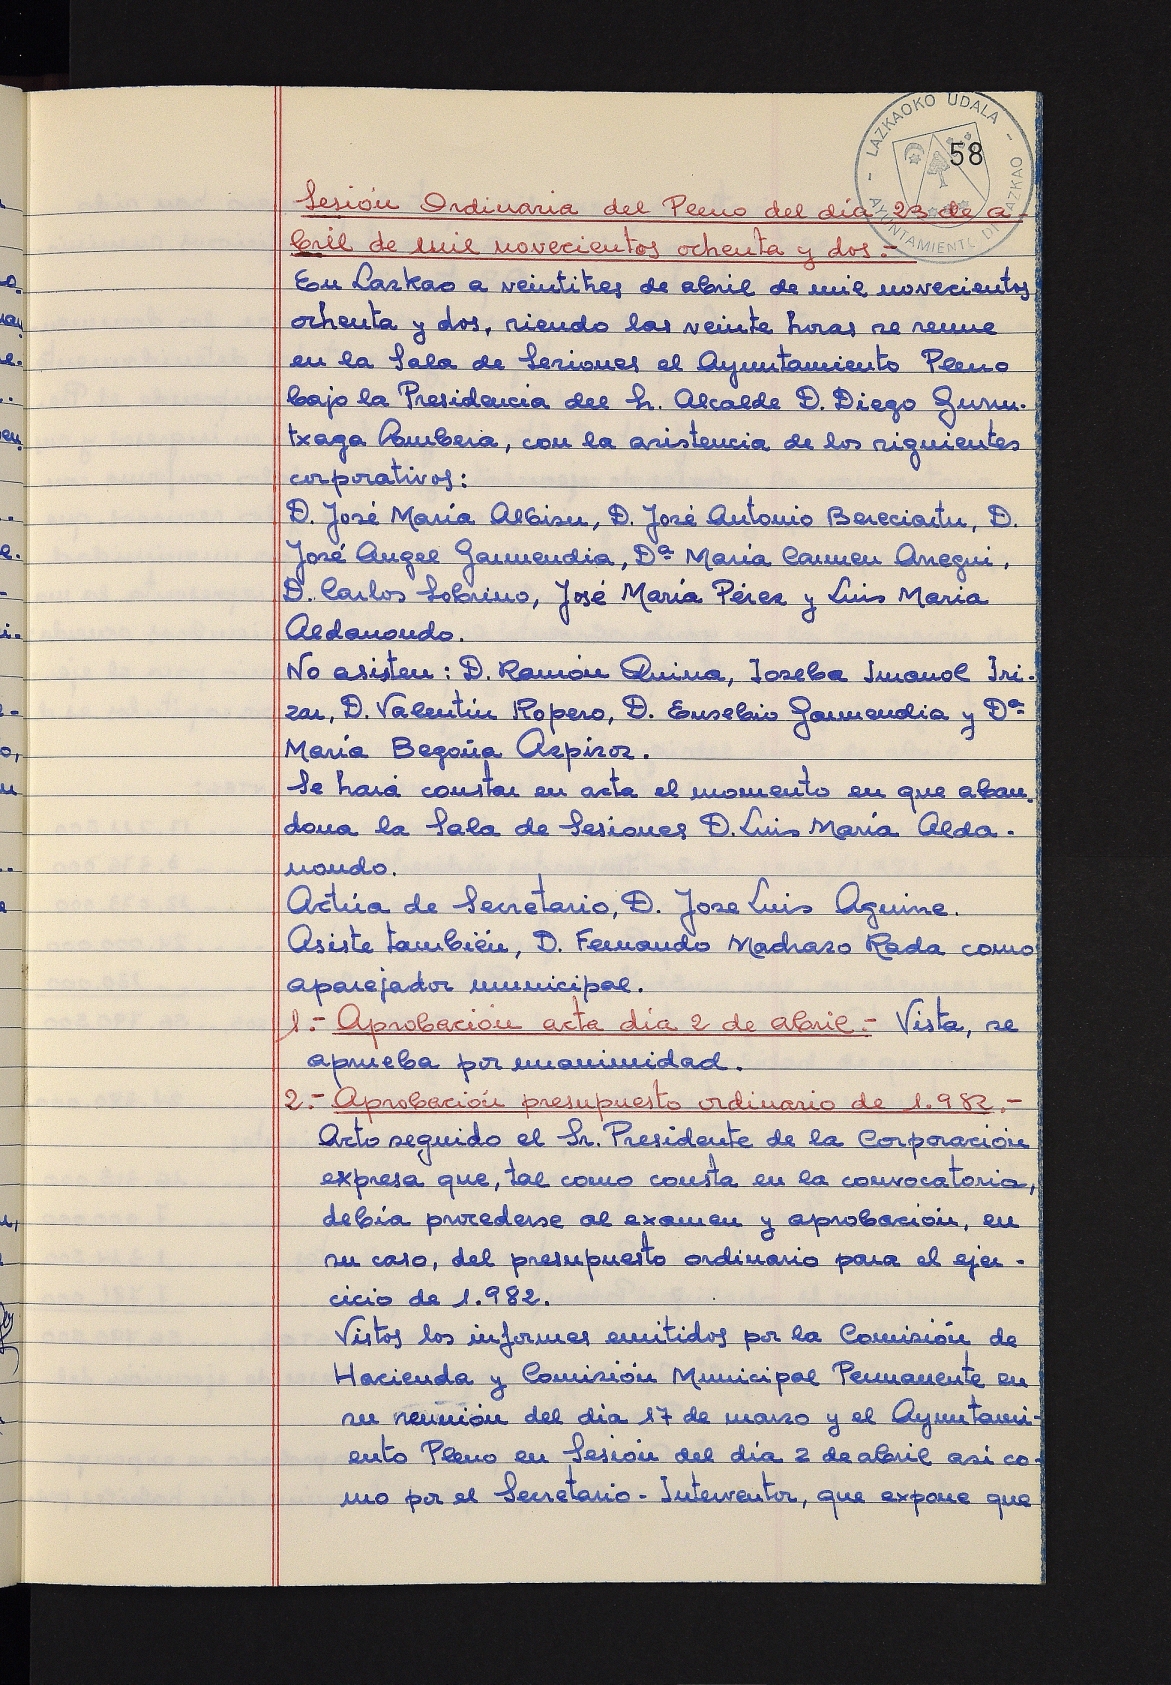 - LAZKAOKO UDALA -
AYUNTAMIENTO DE LAZKAO
58
Sesión Ordinaria del Pleno del día 23 de a-
bril de mil novecientos ochenta y dos.-
En Lazkao a veintitres de abril de mil novecientos
ochenta y dos, siendo las veinte horas se reune
en la Sala de Sesiones el Ayuntamiento Pleno
bajo la Presidencia del Sr. Alcalde D. Diego Gurru-
txaga Aembera, con la asistencia de los siguientes
corporativos:
D. José María Albisu, D. José Antonio Bereciartu, D.
José Angel Garmendia, Dª María Carmen Aregui,
D. Carlos Sobrino, José María Pérez y Luis Maria
Aldanondo.
No asisten: D. Ramón Quina, Joseba Imanol Iri-
zar, D. Valentin Ropero, D. Eusebio Garmendia y Dª
María Begoña Azpiroz.
Se hará constar en acta el momento en que aban-
dona la Sala de Sesiones D. Luis María Alda-
nondo.
Actúa de Secretario, D. Jose Luis Aguirre.
Asiste también, D. Fernando Madrazo Rada como
aparejador municipal.
1.- Aprobación acta día 2 de abril.- Vista, se
aprueba por unanimidad.
2.- Aprobación presupuesto ordinario de 1.982.-
Acto seguido el Sr. Presidente de la Corporación
expresa que, tal como consta en la convocatoria,
debía procederse al examen y aprobación, en
su caso, del presupuesto ordinario para el ejer-
cicio de 1.982.
Vistos los informes emitidos por la Comisión de
Hacienda y Comisión Municipal Permanente en
su reunión del día 17 de marzo y el Ayuntami-
ento Pleno en Sesión del día 2 de abril asi co-
mo por el Secretario-Interventor, que expone que